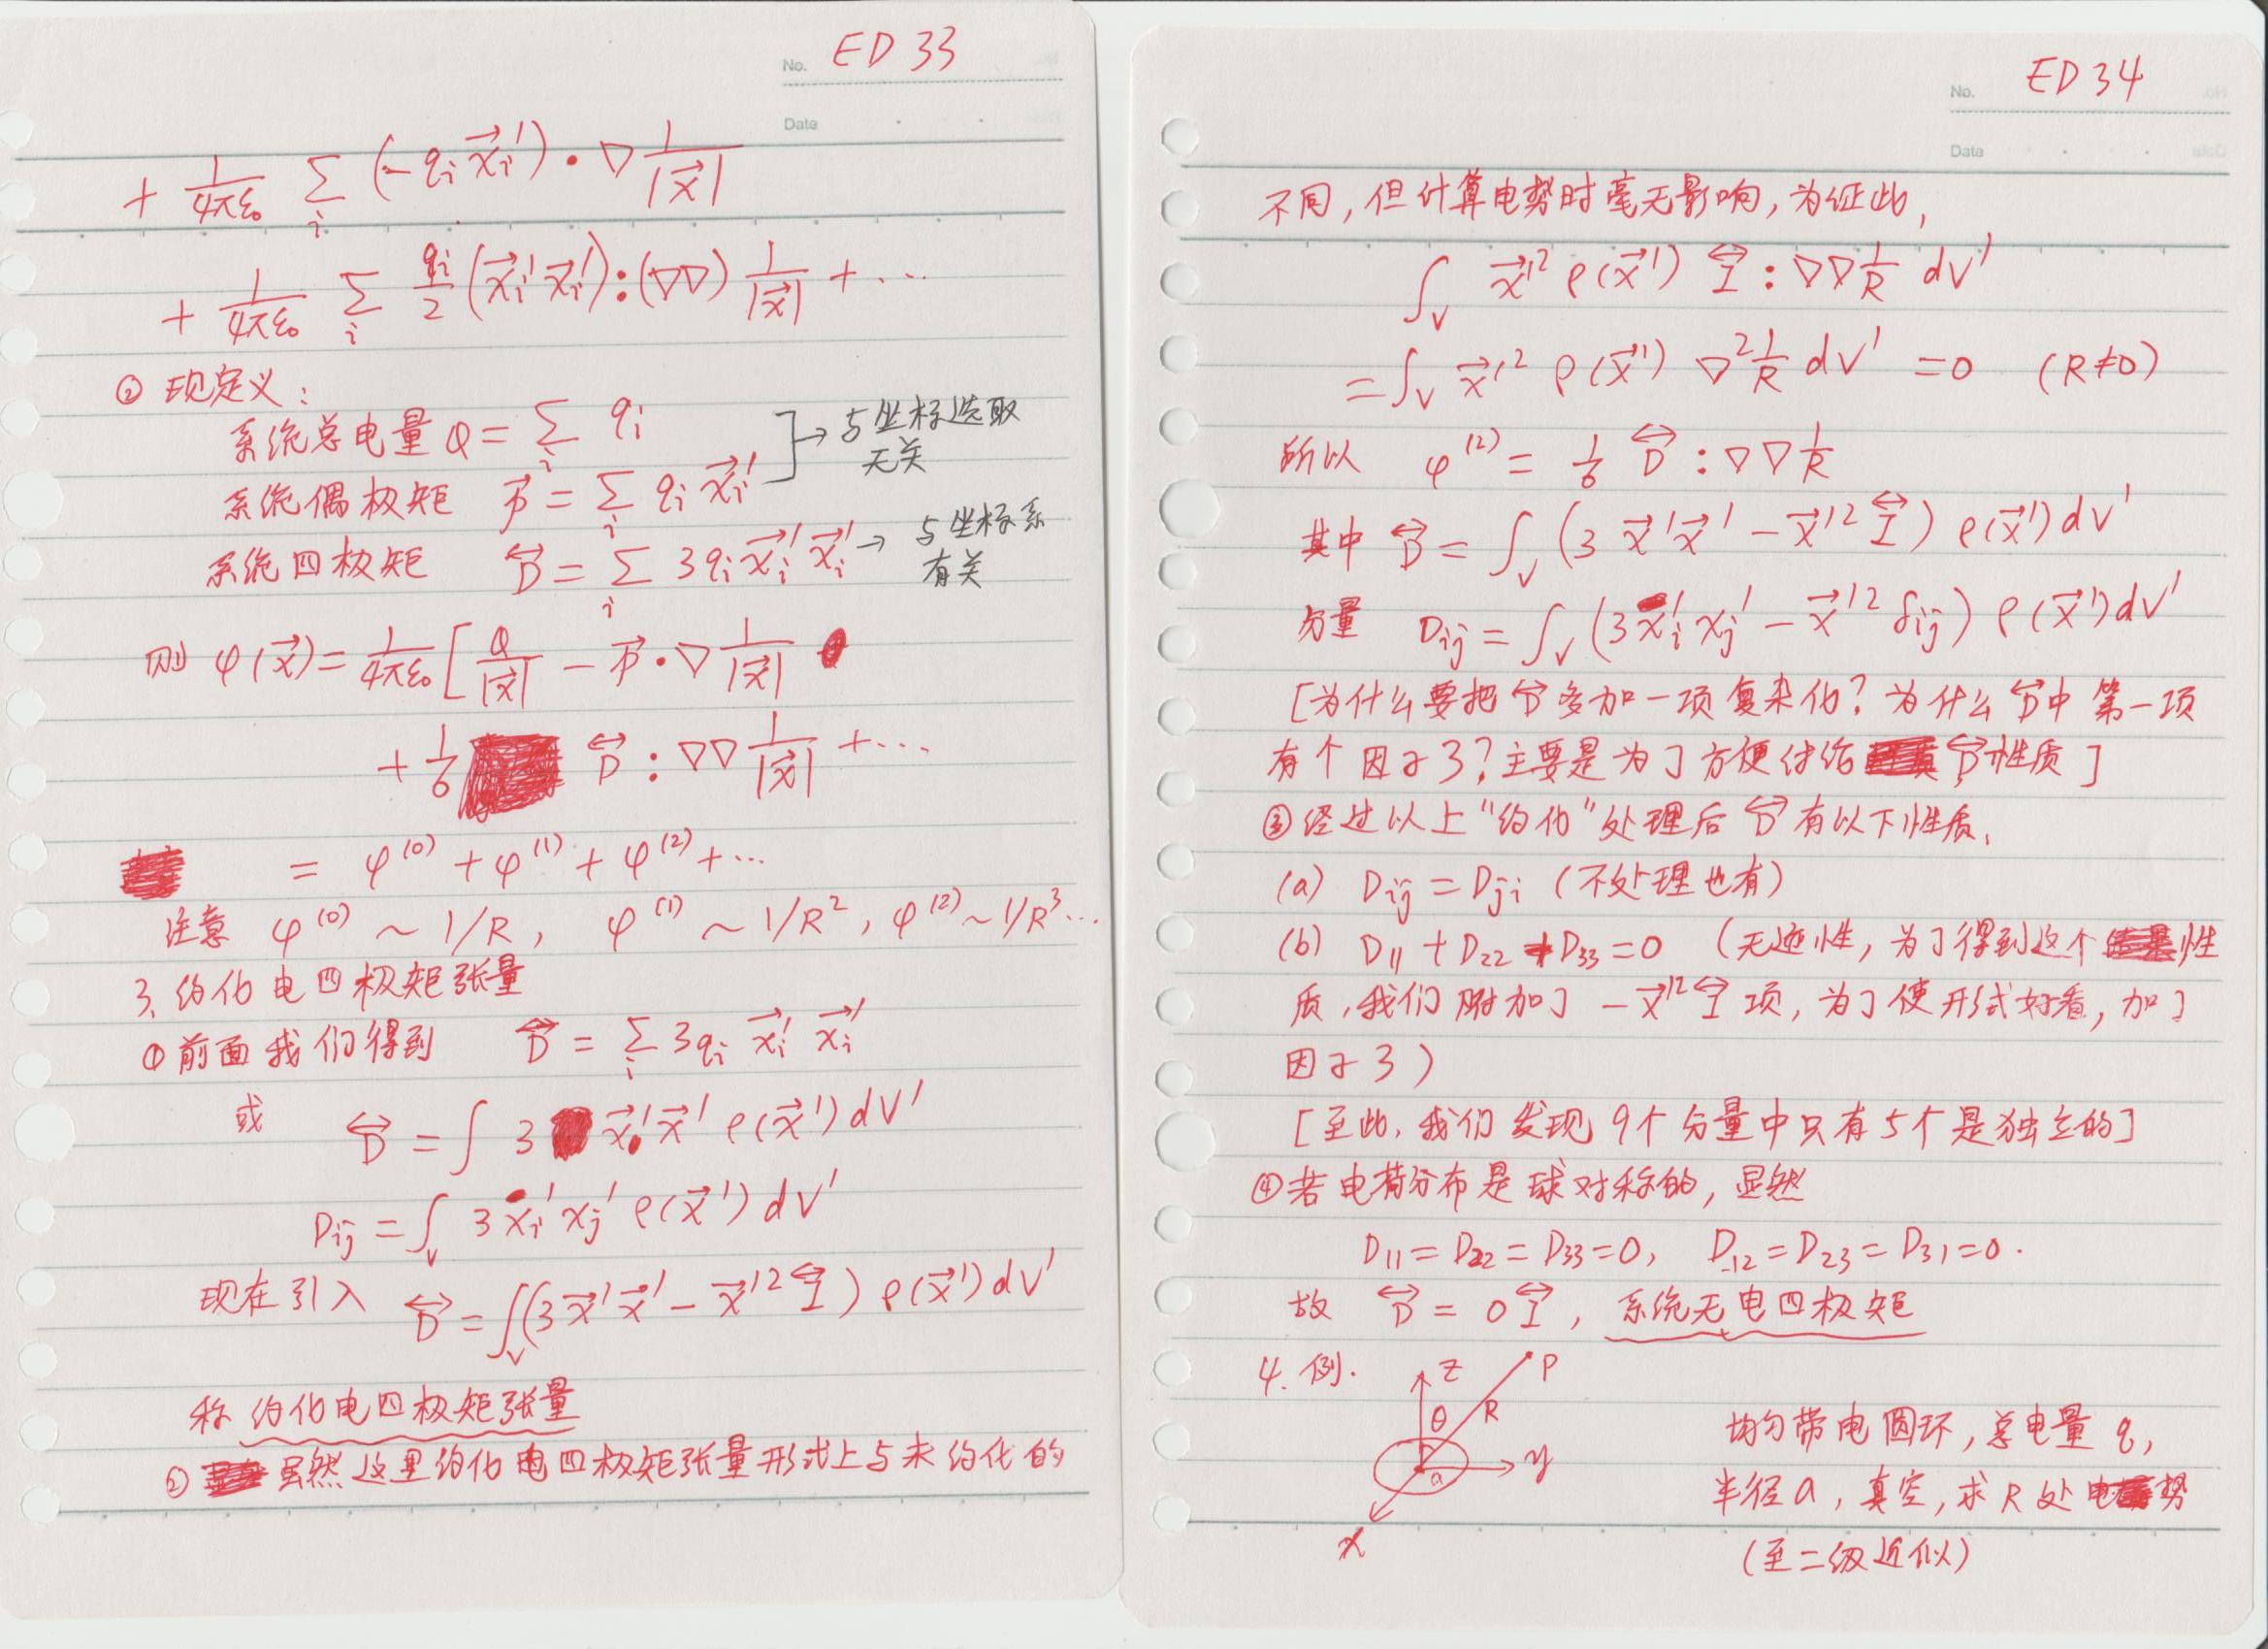 No. ED 33
Date
+ 1/4πε₀ ∑ᵢ (-qᵢ x⃗ᵢ') · ∇ 1/|x⃗|
+ 1/4πε₀ ∑ᵢ qᵢ/2 (x⃗ᵢ' x⃗ᵢ') : (∇∇) 1/|x⃗| + ⋯
② 现定义：
系统总电量 Q = ∑ᵢ qᵢ
系统偶极矩 p⃗ = ∑ᵢ qᵢ x⃗ᵢ'
] → 与坐标选取
无关
系统四极矩 D⃡ = ∑ᵢ 3qᵢ x⃗ᵢ' x⃗ᵢ' → 与坐标系
有关
则 φ(x⃗) = 1/4πε₀ [ Q/|x⃗| - p⃗ · ∇ 1/|x⃗|
+ 1/6 D⃡ : ∇∇ 1/|x⃗| + ⋯
= φ⁽⁰⁾ + φ⁽¹⁾ + φ⁽²⁾ + ⋯
注意 φ⁽⁰⁾ ~ 1/R, φ⁽¹⁾ ~ 1/R², φ⁽²⁾ ~ 1/R³ ⋯
3. 约化电四极矩张量
① 前面我们得到 D⃡ = ∑ᵢ 3qᵢ x⃗ᵢ' x⃗ᵢ'
或 D⃡ = ∫ 3 x⃗' x⃗' ρ(x⃗') dV'
Dᵢⱼ = ∫ᵥ 3 xᵢ' xⱼ' ρ(x⃗') dV'
现在引入 D⃡ = ∫ᵥ (3 x⃗' x⃗' - x⃗'² I⃡) ρ(x⃗') dV'
称 约化电四极矩张量
② 虽然这里约化电四极矩张量形式上与未约化的
No. ED 34
Date
不同, 但计算电势时毫无影响, 为证此,
∫ᵥ x⃗'² ρ(x⃗') I⃡ : ∇∇ 1/R dV'
= ∫ᵥ x⃗'² ρ(x⃗') ∇² 1/R dV' = 0 (R≠0)
所以 φ⁽²⁾ = 1/6 D⃡ : ∇∇ 1/R
其中 D⃡ = ∫ᵥ (3 x⃗' x⃗' - x⃗'² I⃡) ρ(x⃗') dV'
分量 Dᵢⱼ = ∫ᵥ (3 xᵢ' xⱼ' - x⃗'² δᵢⱼ) ρ(x⃗') dV'
[为什么要把 D⃡ 多加一项复杂化? 为什么 D⃡ 中第一项
有个因子3? 主要是为了方便讨论 D⃡ 性质]
③ 经过以上"约化"处理后 D⃡ 有以下性质.
(a) Dᵢⱼ = Dⱼᵢ (不处理也有)
(b) D₁₁ + D₂₂ + D₃₃ = 0 (无迹性, 为了得到这个性
质, 我们附加了 - x⃗'² I⃡ 项, 为了使形式好看, 加了
因子3)
[至此, 我们发现9个分量中只有5个是独立的]
④ 若电荷分布是球对称的, 显然
D₁₁ = D₂₂ = D₃₃ = 0, D₁₂ = D₂₃ = D₃₁ = 0.
故 D⃡ = 0 I⃡, 系统无电四极矩
4. 例.
z P
θ R
a y
x
均匀带电圆环, 总电量 q,
半径 a, 真空, 求 R 处电势
(至二级近似)